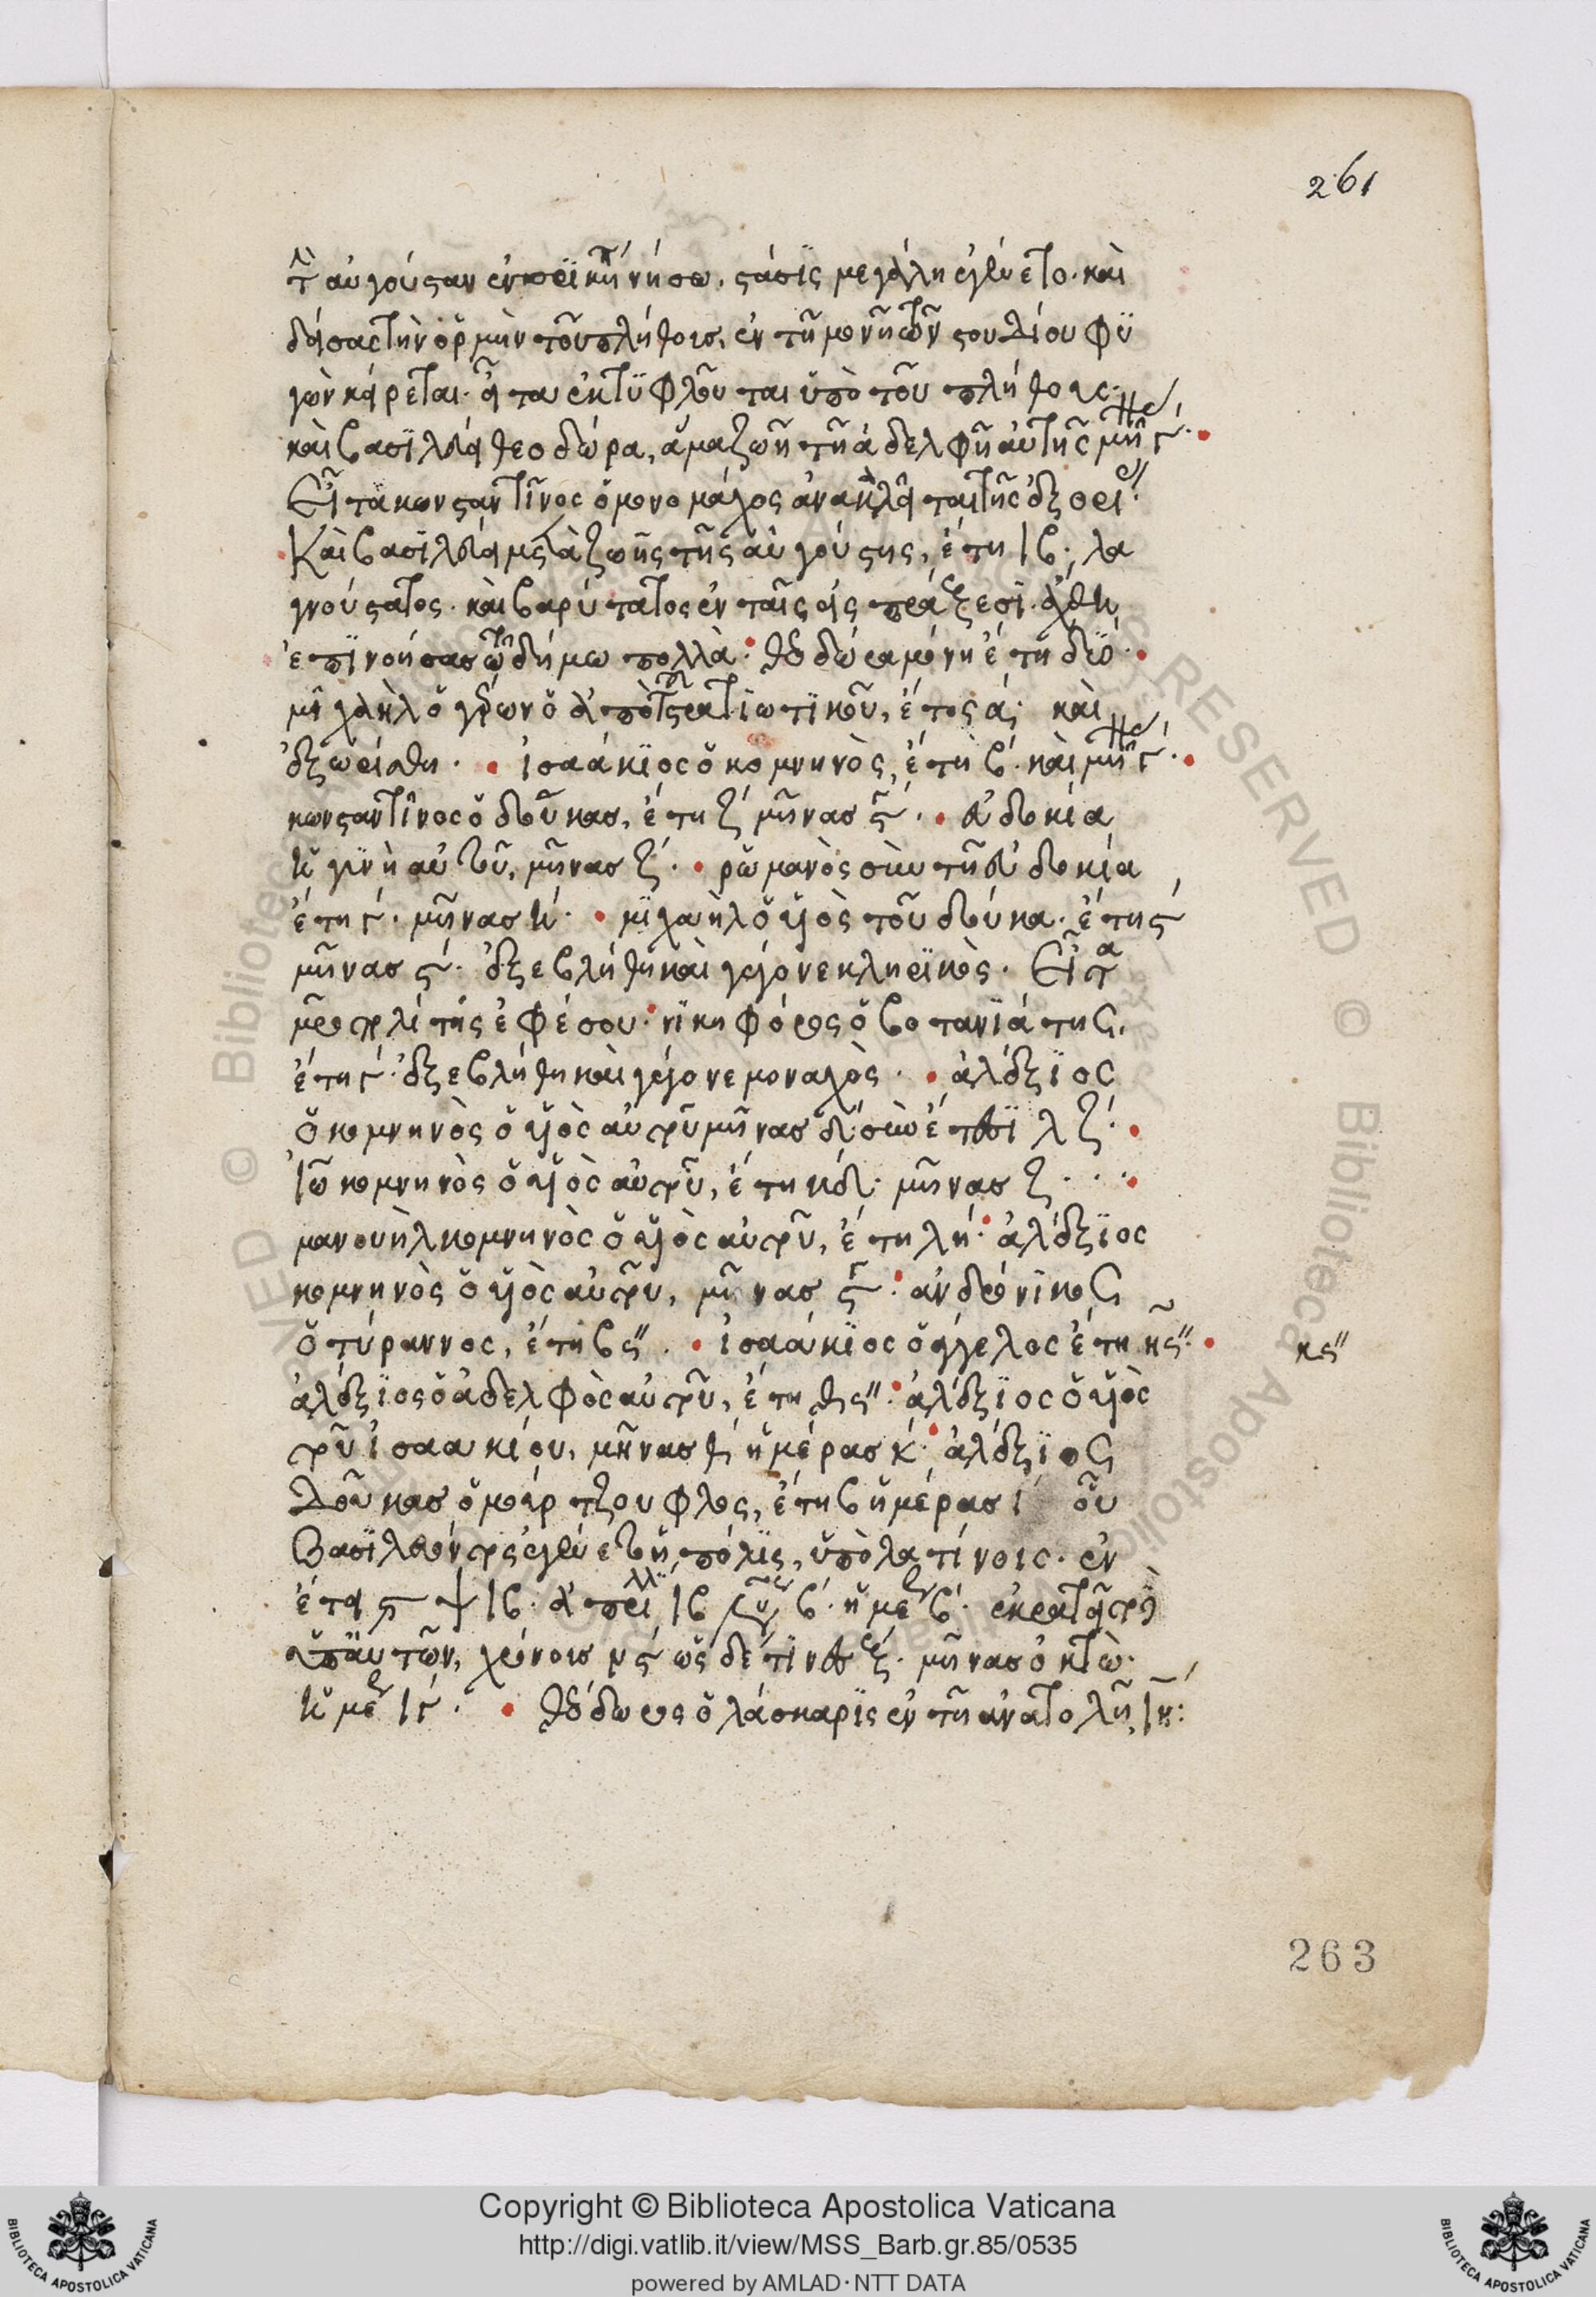 261
τὴν αὐγούσταν ἐν πριγκήπῳ νήσω, στάσϊς μεγάλη ἐγένετο. καὶ
δείσας τὴν ὁρμὴν τοῦ πλήθους, ἐν τῆ μονῆ τῶν στουδίου φϋ
γὼν κείρεται. εἶτα ἐκτϋφλοῦται ὑπὸ τοῦ πλήθους.
καὶ βασϊλεύει θεοδώρα, ἅμα ζωῆ τῆ ἀδελφῆ αὐτῆς μῆν γ.
Εἶτα κωνσταντῖνος ὁ μονομάχος ἀνακαλεῖται τῆς ἐξορί
Καὶ βασϊλεύει μετὰ ζωῆς τῆς αὐγούστης, ἔτη ιβ. λα
γνούστατος. καὶ βαρύτατος ἐν ταῖς εἰσπράξεσϊ.
ἐπϊνοήσας τῶ δήμω πολλὰ. θεοδώρα μόνη ἔτη δύο.
μϊχαὴλ ὁ γέρων ὁ ἀπὸ στρατϊωτϊκοῦ, ἔτος α. καὶ
ἐξωρίσθη. ἰσαάκϊος ὁ κομνηνὸς, ἔτη β. καὶ μῆν γ.
κωνσταντῖνος ὁ δούκας, ἔτη ζ μῆνας ϛ. εὐδοκία
ἡ γυνὴ αὐτοῦ, μῆνας ζ. ρωμανὸς σὺν τῆ εὐδοκία
ἔτη γ. μῆνας η. μϊχαὴλ ὁ υἱὸς τοῦ δούκα. ἔτη ϛ
μῆνας ϛ. ἐξεβλήθη καὶ γέγονε κληρϊκὸς. Εἶτα
μητροπολίτης ἐφέσου. νϊκηφόρος ὁ βοτανϊάτης,
ἔτη γ. ἐξεβλήθη καὶ γέγονε μοναχὸς. ἀλέξϊος
ὁ κομνηνὸς ὁ υἱὸς αὐτοῦ μῆνας δ. σὺν ἔτεσϊ λζ.
Ἰω κομνηνὸς ὁ υἱὸς αὐτοῦ, ἔτη κδ. μῆνας ζ.
μανουὴλ κομνηνὸς ὁ υἱὸς αὐτοῦ, ἔτη λη. ἀλέξϊος
κομνηνὸς ὁ υἱὸς αὐτοῦ, μῆνας ϛ. ἀνδρόνϊκος
ὁ τύραννος, ἔτη βς″. ἰσαάκϊος ὁ ἄγγελος ἔτη ης″.
κς″
ἀλέξϊος ὁ ἀδελφὸς αὐτοῦ, ἔτη θς″. ἀλέξϊος ὁ υἱὸς
τοῦ ἰσαακίου, μῆνας θ ἡμέρας κ. ἀλέξϊος
Δούκας ὁ μούρτζουφλος, ἔτη β ἡμέρας ι οὗ
Βασϊλεύοντος ἐγένετο ἡ πόλϊς, ὑπὸ λατίνοις. ἐν
ἔτει ϛψιβ. ἀπρϊλλ ιβ β. ἡμερ β. ἐκρατεῖτο
ὑπ' αὐτῶν, χρόνους νϛ ὡς δέ τϊνες ξ. μῆνας ὀκτὼ.
ἡμερ ιγ. θεόδωρος ὁ λάσκαρϊς ἐν τῆ ἀνατολῆ, ιη:
263
Copyright © Biblioteca Apostolica Vaticana
http://digi.vatlib.it/view/MSS_Barb.gr.85/0535
powered by AMLAD·NTT DATA